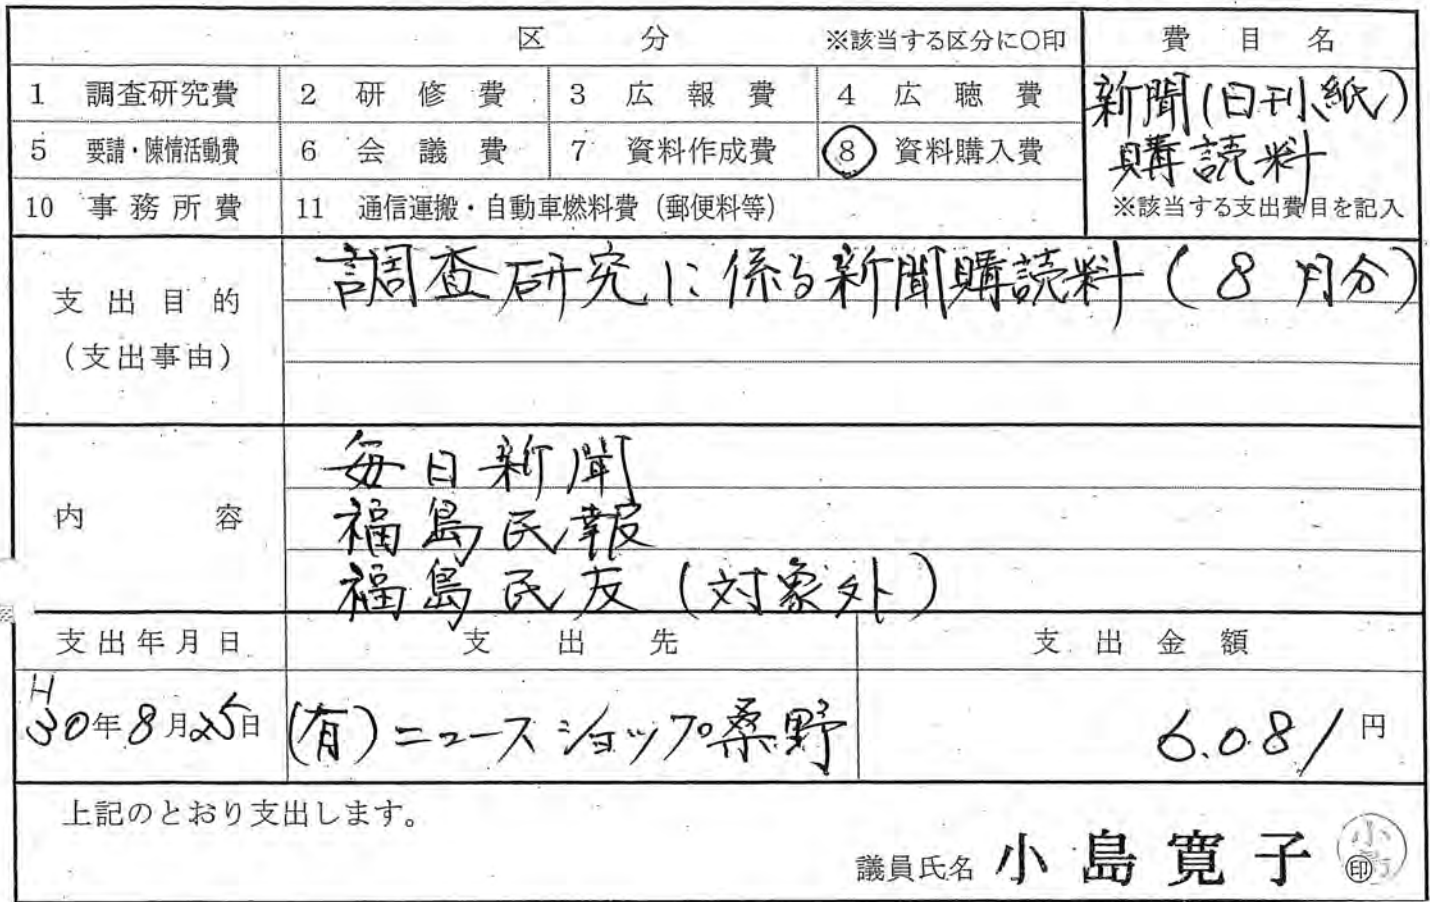 区 分 ※該当する区分に○印 費 目 名
1 調査研究費 2 研 修 費 3 広 報 費 4 広 聴 費
新聞(日刊紙)
5 要請・陳情活動費 6 会 議 費 7 資料作成費 8 資料購入費
購読料
10 事 務 所 費 11 通信運搬・自動車燃料費（郵便料等）
※該当する支出費目を記入
支 出 目 的
(支出事由)
調査研究に係る新聞購読料(8月分)
内 容
毎日新聞
福島民報
福島民友(対象外)
支出年月日 支 出 先 支 出 金 額
H30年8月25日 (有)ニュースショップ桑野 6.081円
上記のとおり支出します。
議員氏名 小島寛子 ㊞